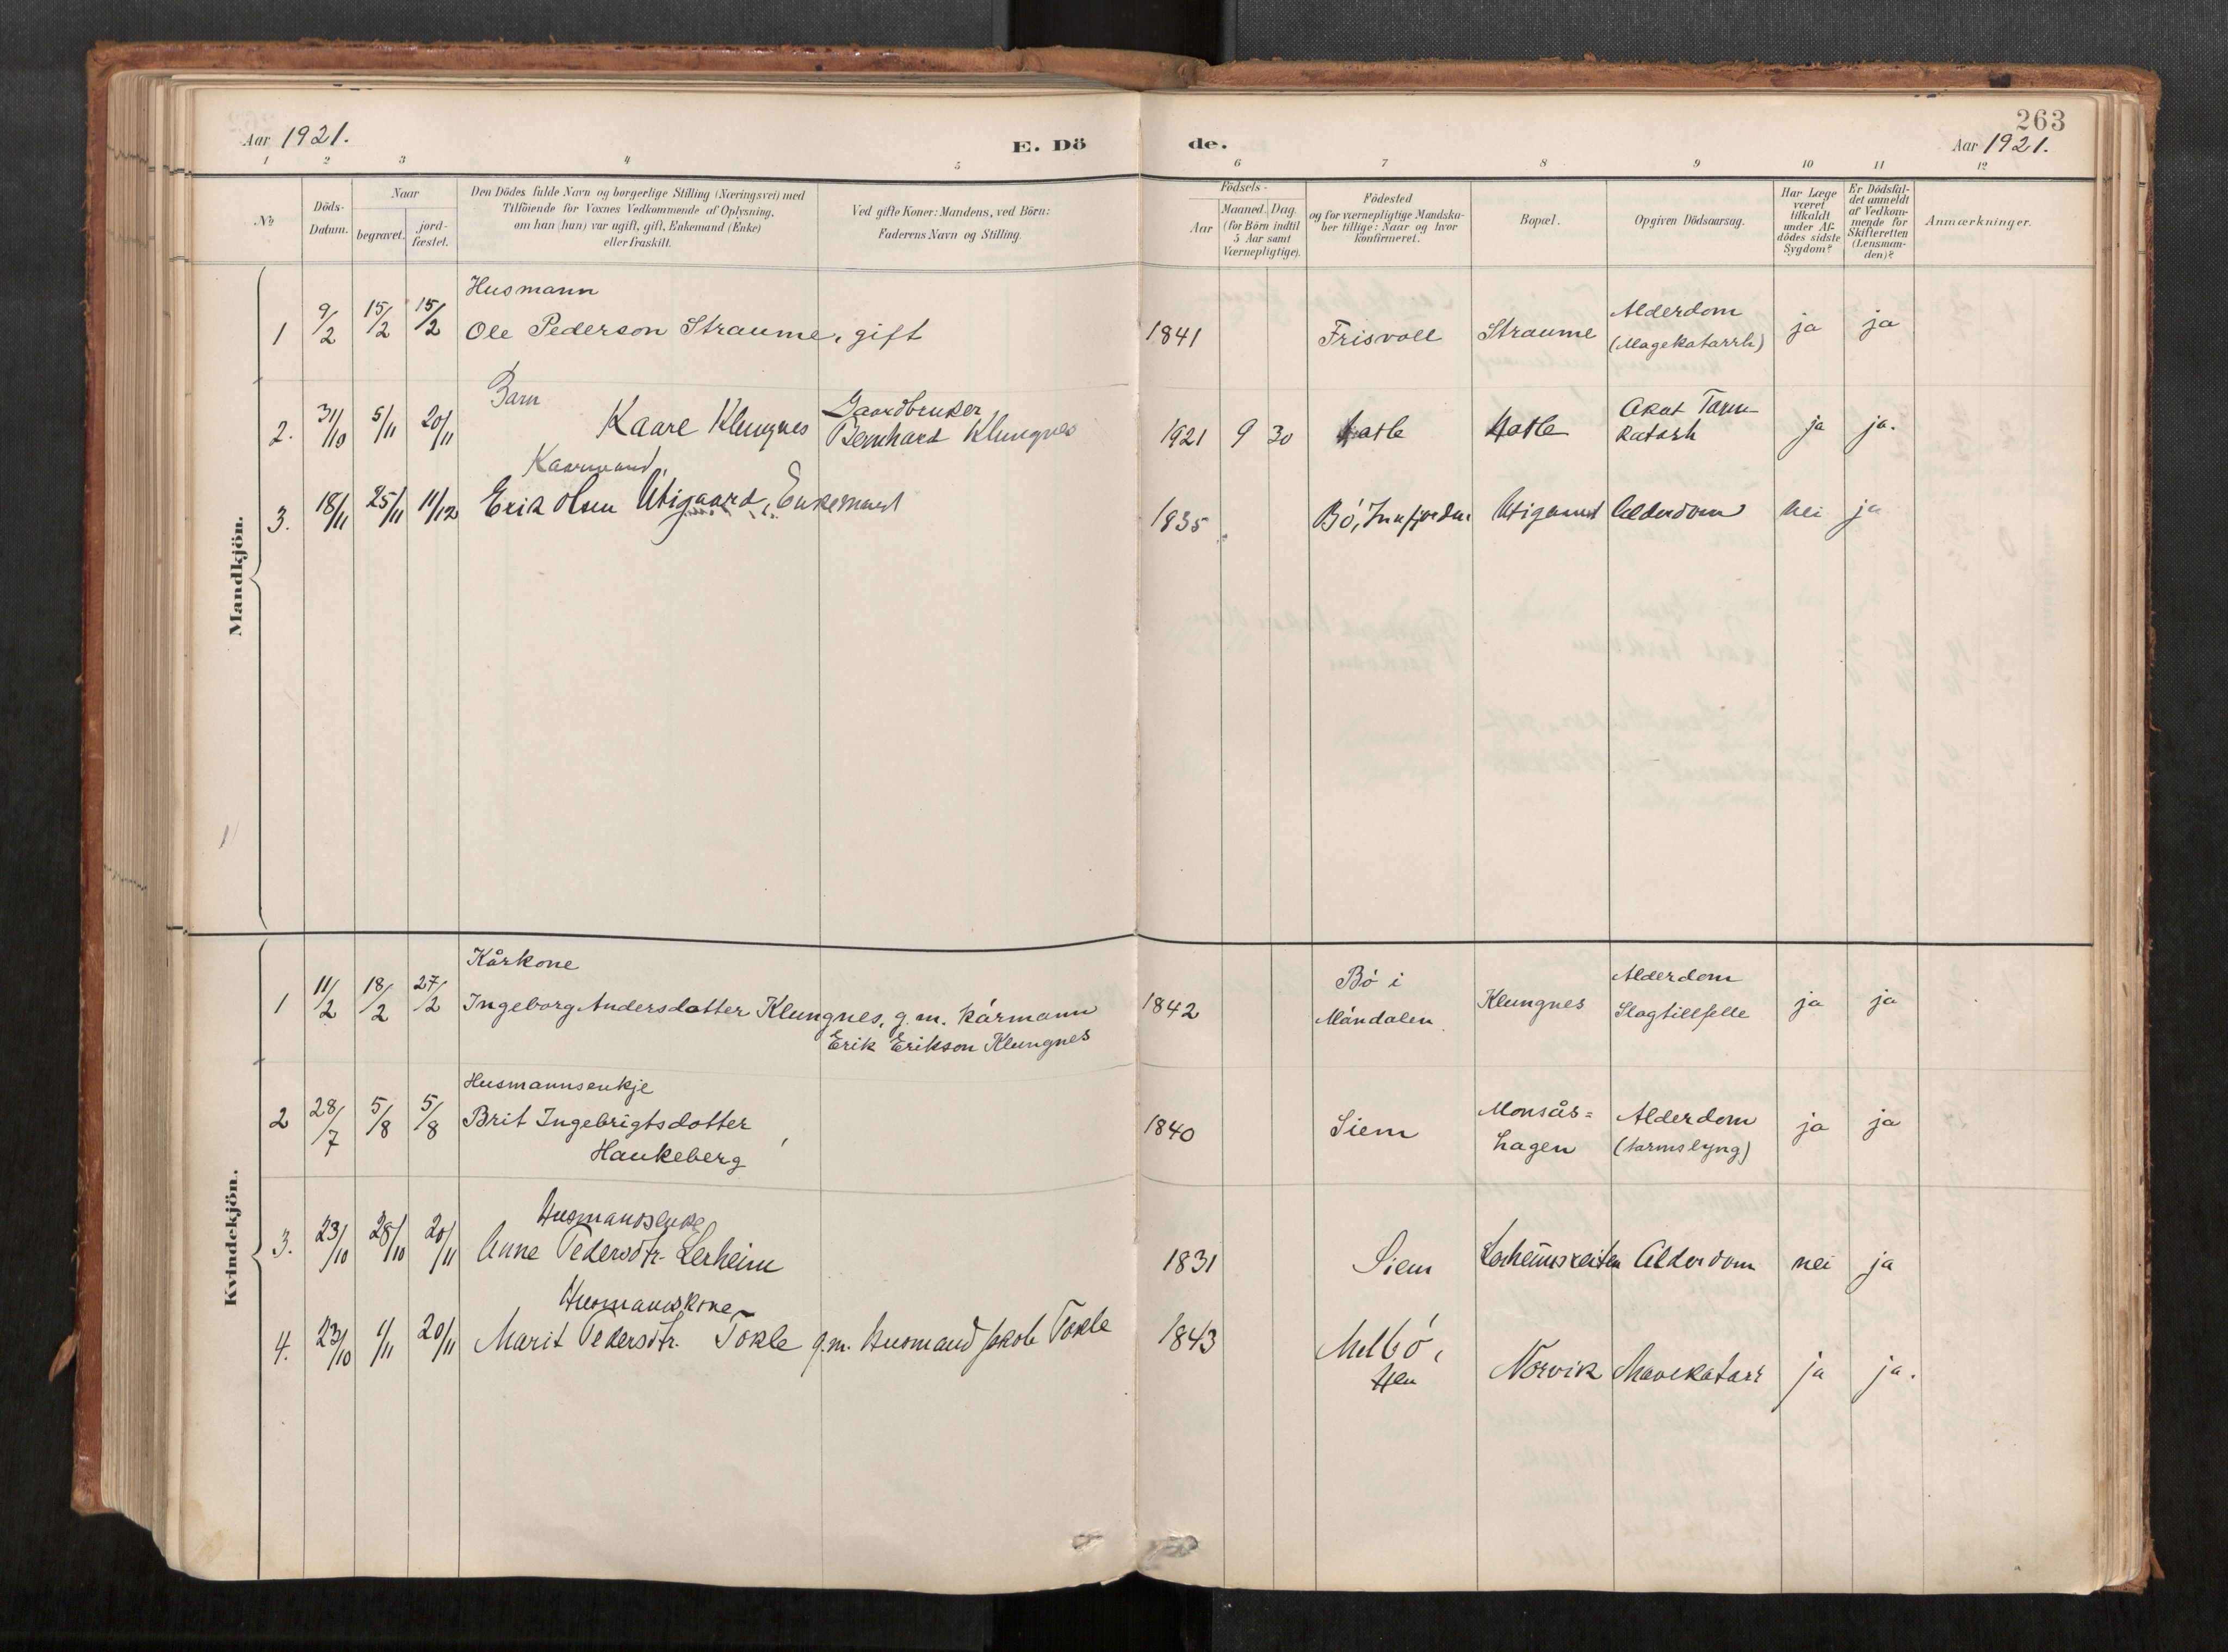 263
Aar 1921.
E. Dö
de.
Aar 1921.
1 2 3 4 5 6 7 8 9 10 11 12
No
Döds-Datum.
Naar
begravet.
jord-fæstet.
Den Dödes fulde Navn og borgerlige Stilling (Næringsvei) med
Tilföiende for Voxnes Vedkommende af Oplysning,
om han (hun) var ugift, gift, Enkemand (Enke)
eller fraskilt.
Ved gifte Koner: Mandens, ved Börn:
Faderens Navn og Stilling.
Födsels-
Aar
Maaned. Dag.
(for Börn indtil
5 Aar samt
Værnepligtige).
Födested
og for værnepligtige Mandska-
ber tillige: Naar og hvor
konfirmeret.
Bopæl.
Opgiven Dödsaarsag.
Har Læge
været
tilkaldt
under Af-
dödes sidste
Sygdom?
Er Dödsfal-
det anmeldt
af Vedkom-
mende for
Skifteretten
(Lensman-
den)?
Anmærkninger.
Mandkjön.
Husmann
1 9/2 15/2 15/2 Ole Pederson Straume, gift 1841 Frisvoll Straume Alderdom (Magekatarrh) ja ja
Barn
2. 31/10 5/11 20/11 Kaare Klungnes Gaardbruker Bernhard Klungnes 1921 9 30 Hatle Hatle Akut Tarm-katarh ja ja.
Kaarmand,
3. 18/11 25/11 11/12 Erik Olsen Utigaard, Enkemand 1835 Bó, Innfjorden Utigaard Alderdom nei ja
Kvindekjön.
Kårkone
1 11/2 18/2 27/2 Ingeborg Andersdotter Klungnes, g.m. kårmann 1842 Bó i Måndalen Klungnes Alderdom Slagtillfelle ja ja
Erik Erikson Klungnes
Husmannsenkje
2 28/7 5/8 5/8 Brit Ingebrigtsdotter 1840 Siem Monsås=hagen Alderdom (tarmslyng) ja ja
Haukeberg
Husmandsenke
3. 23/10 28/10 20/11 Anne Pedersdtr. Lerheim 1831 Siem Lerheimsreiten Alderdom nei ja
Husmandskone
4. 23/10 1/11 20/11 Marit Pedersdtr. Tokle g.m. Husmand Jakob Tokle 1843 Melbó, Hen Norvik Mavekatarr ja ja.